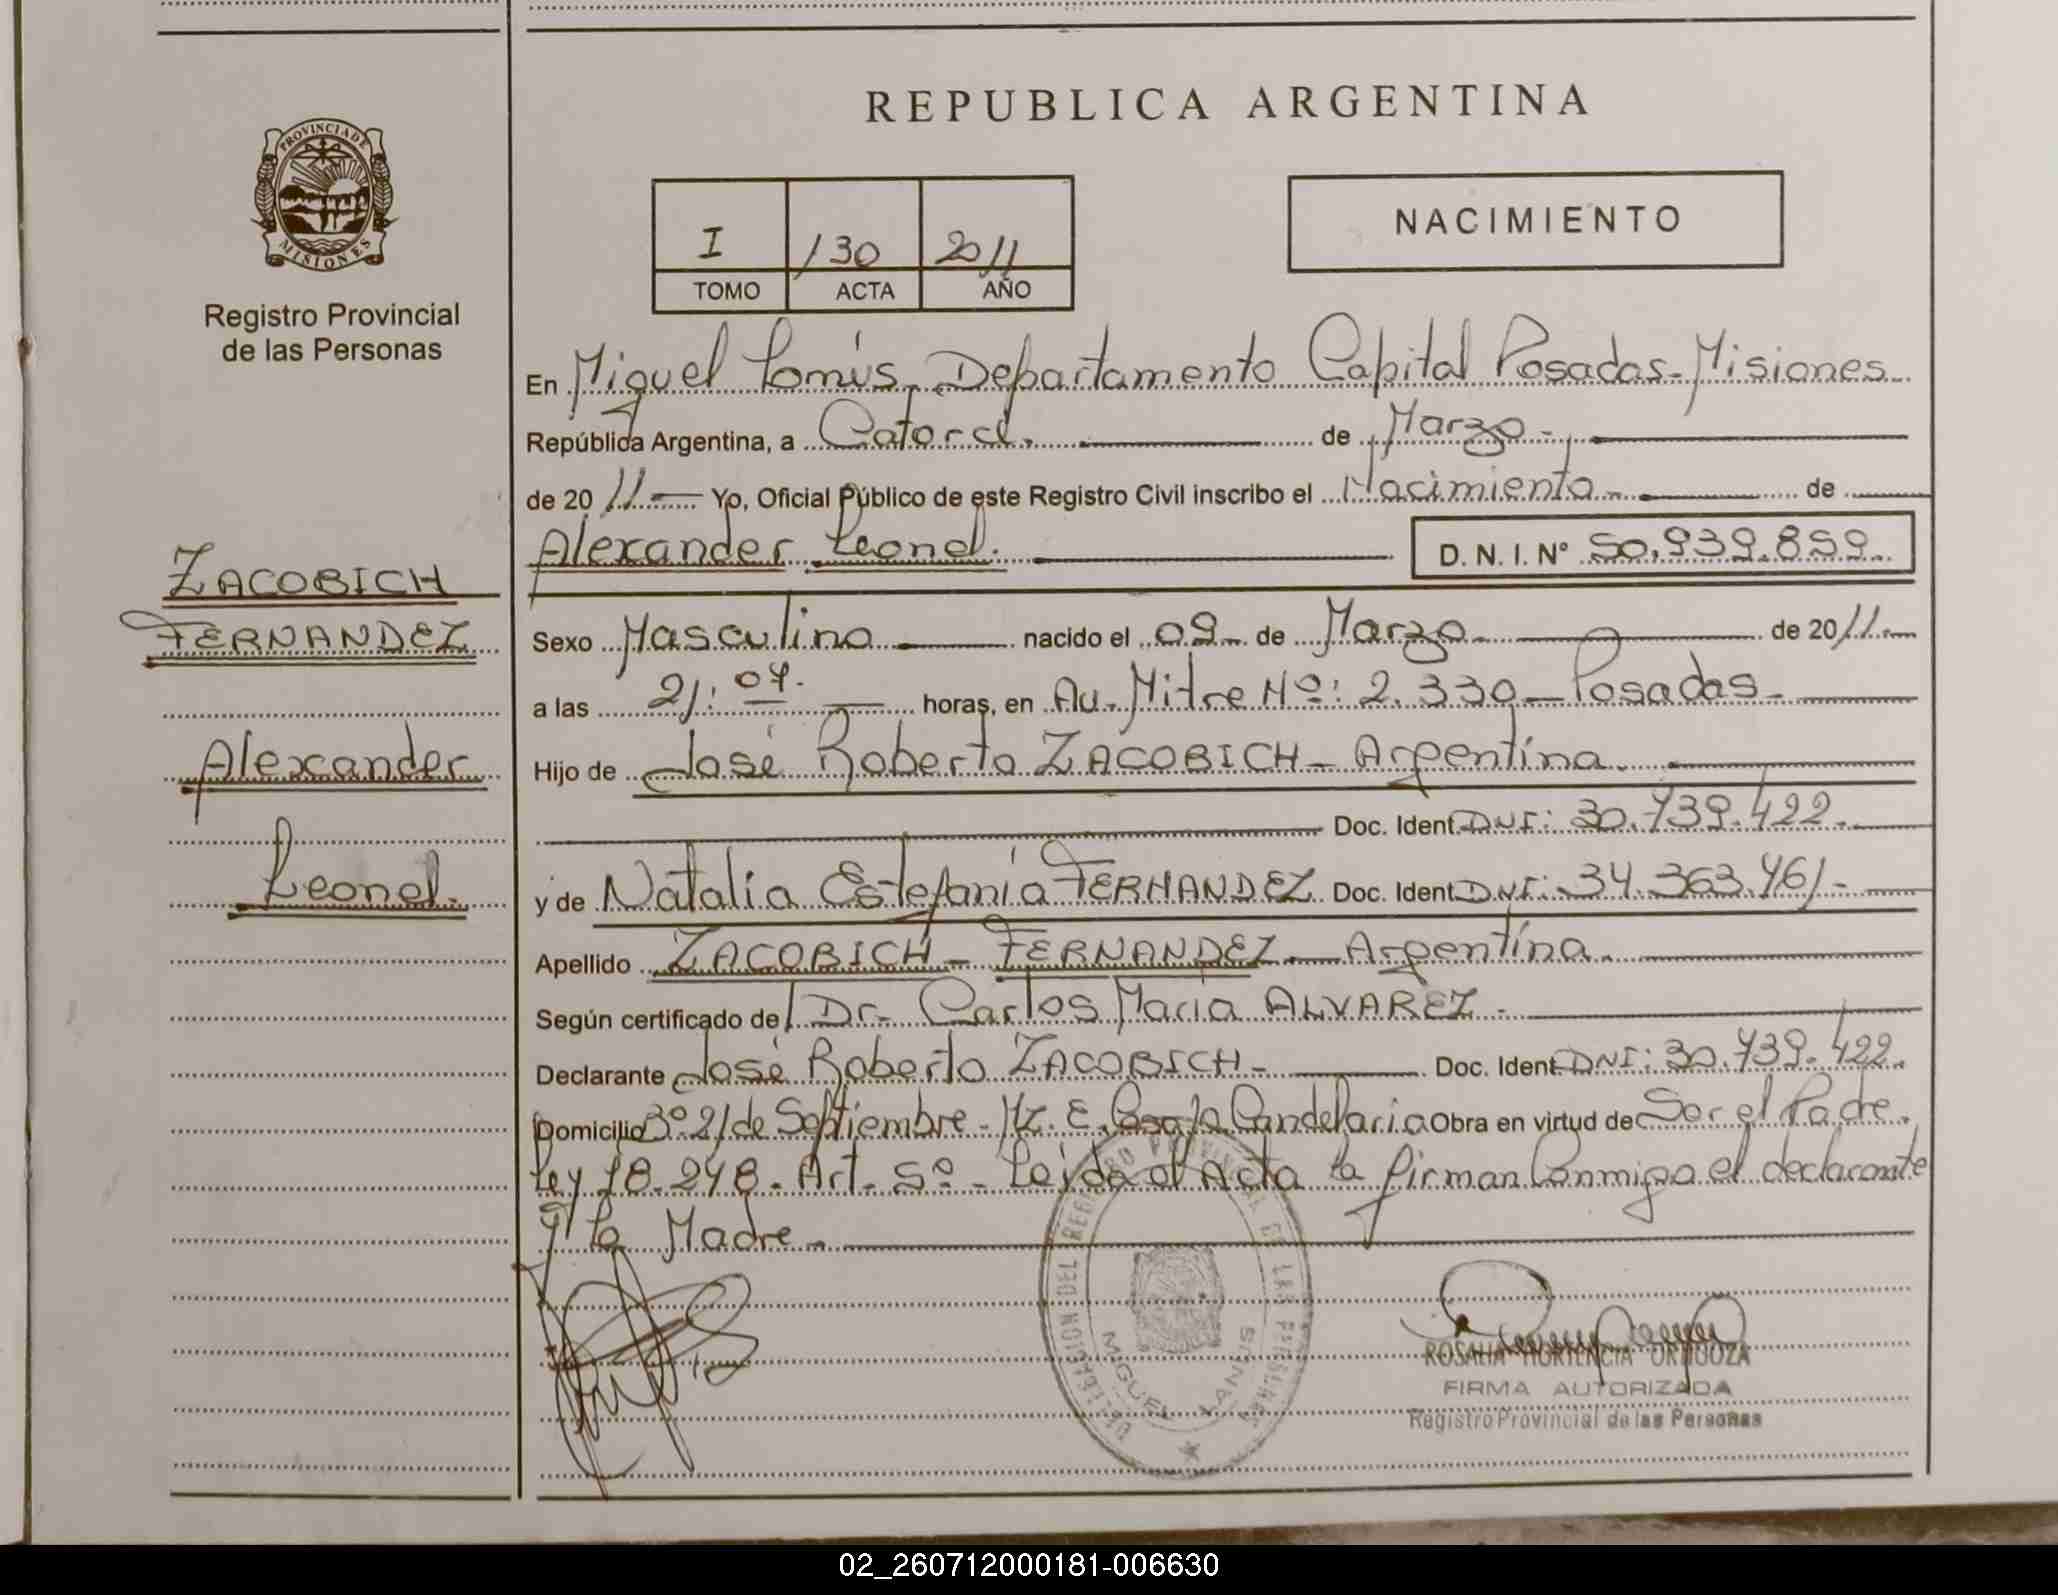 REPUBLICA ARGENTINA
PROVINCIA DE
MISIONES
Registro Provincial
de las Personas
I 130 2011
TOMO ACTA AÑO
NACIMIENTO
En Miguel Lanús, Departamento Capital Posadas-Misiones
República Argentina, a Catorce. de Marzo.
de 2011. Yo, Oficial Público de este Registro Civil inscribo el Nacimiento de
Alexander Leonel. D. N. I. Nº 50.939.859.
ZACOBICH
FERNANDEZ
Alexander
Leonel.
Sexo Masculino nacido el 09 de Marzo de 2011.
a las 21:07. horas, en Av. Mitre Nº: 2.330 Posadas.
Hijo de José Roberto ZACOBICH - Argentina.
Doc. Ident. DNI: 30.739.422.
y de Natalia Estefanía FERNANDEZ Doc. Ident. DNI: 34.363.761.
Apellido ZACOBICH - FERNANDEZ - Argentina.
Según certificado de Dr. Carlos María ALVAREZ.
Declarante José Roberto ZACOBICH - Doc. Ident. DNI: 30.739.422.
Domicilio Bº 21 de Septiembre - Mz. E. Candelaria Obra en virtud de Ser el Padre.
Ley 18.248. Art. 5º - Leída el Acta la firman Conmigo el declarante
y la Madre.
DELEGACION DEL REGISTRO PROVINCIAL DE LAS PERSONAS
MIGUEL LANUS
ROSALIA HORTENCIA ORTIGOZA
FIRMA AUTORIZADA
Registro Provincial de las Personas
02_260712000181-006630